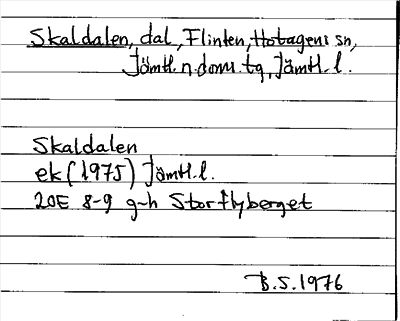 Skaldalen, dal, Flinten, Hotagens sn,
Jämtl. n. doms. tg, Jämtl. l.
Skaldalen
ek (1975) Jämtl. l.
20E 8-9 g-h Storflyberget
B.S. 1976